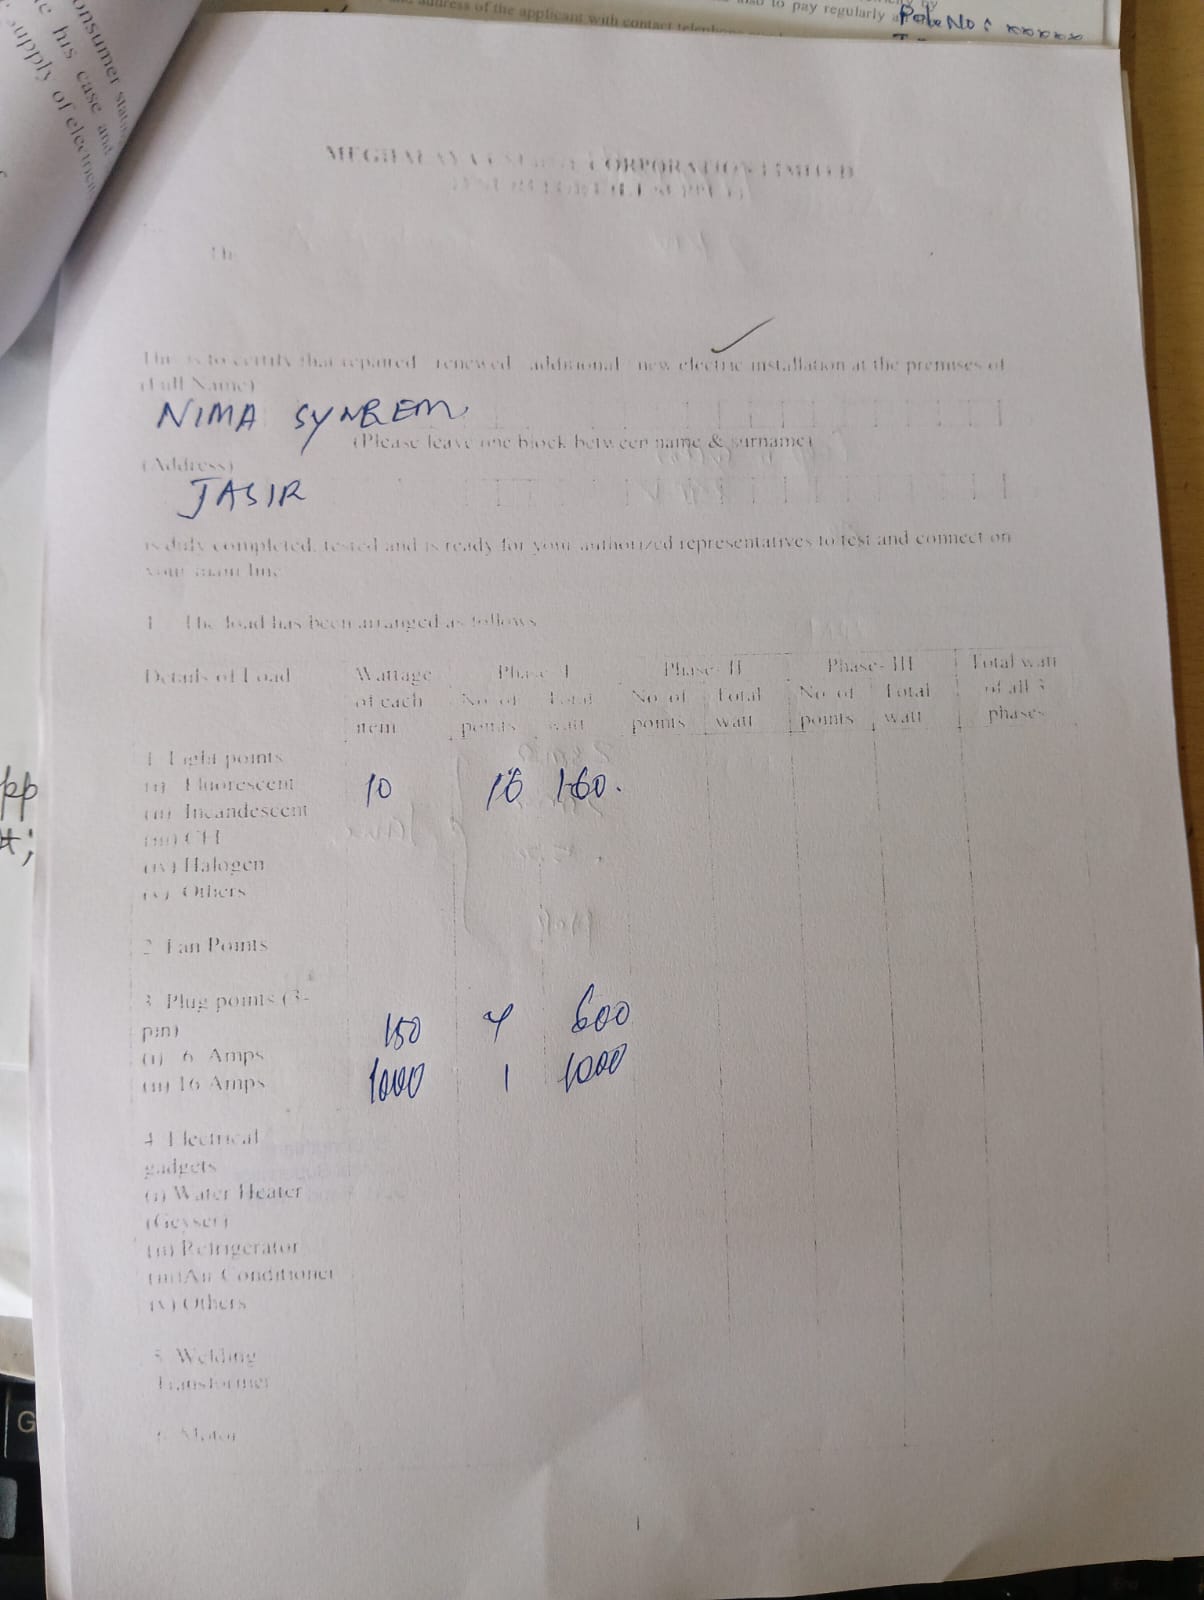 consumer status
his case and
supply of electrici
address of the applicant with contact telephone
to pay regularly
Pole No : xxxxxx
MEGHALAYA ENERGY CORPORATION LIMITED
This is to certify that repaired renewed additional new electric installation at the premises of
(Full Name)
NIMA SYNREM
(Please leave one block between name & surname)
(Address)
JASIR
is duly completed, tested and is ready for your authorized representatives to test and connect on
your main line
1 The load has been arranged as follows
Details of Load Wattage of each item Phase- I Phase- II Phase- III Total watt of all 3 phases
No of points Total watt No of points Total watt No of points Total watt
1 Light points
(i) Fluorescent 10 16 160.
(ii) Incandescent
(iii) CFL
(iv) Halogen
(v) Others
2 Fan Points
3 Plug points (3-
pin) 150 4 600
(i) 6 Amps
(ii) 16 Amps 1000 1 1000
4 Electrical
gadgets
(i) Water Heater
(Geyser)
(ii) Refrigerator
(iii) Air Conditioner
iv) Others
5 Welding
Transformer
6 Motor
1